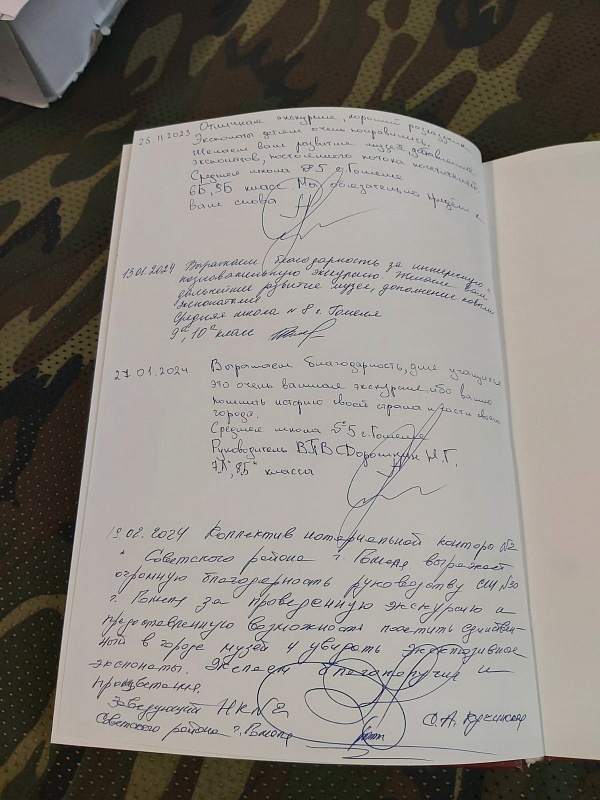 25.11.2023 Отличная экскурсия, хороший
Экспонаты детям очень понравились.
Желаем вам развития музея,
экспонатов, постоянного потока посетителей.
Средняя школа №5 г. Гомеля
6Б, 8Б класс Мы обязательно придём к
вам снова
13.01.2024 Выражаем благодарность за интересную,
познавательную экскурсию. Желаем вам
дальнейшее развитие музея, дополнение новыми
экспонатами
Средняя школа №8 г. Гомеля
9"а", 10"а" класс
27.01.2024 Выражаем благодарность, для учащихся
это очень важная экскурсия, ибо важно
помнить историю своей страны и части своего
города.
Средняя школа 5 г. Гомеля
Руководитель ВПВ Дорошкин Н.Г.
7А", 8Б" классы
19.02.2024 Коллектив нотариальной конторы №2
Советского района г. Гомеля выражает
огромную благодарность руководству СШ №30
г. Гомеля за проведенную экскурсию и
предоставленную возможность посетить единствен-
ный в городе музей и увидеть эксклюзивные
экспонаты. Желаем благополучия и
процветания.
Заведующий НК №2
Советского района г. Гомеля О.А.